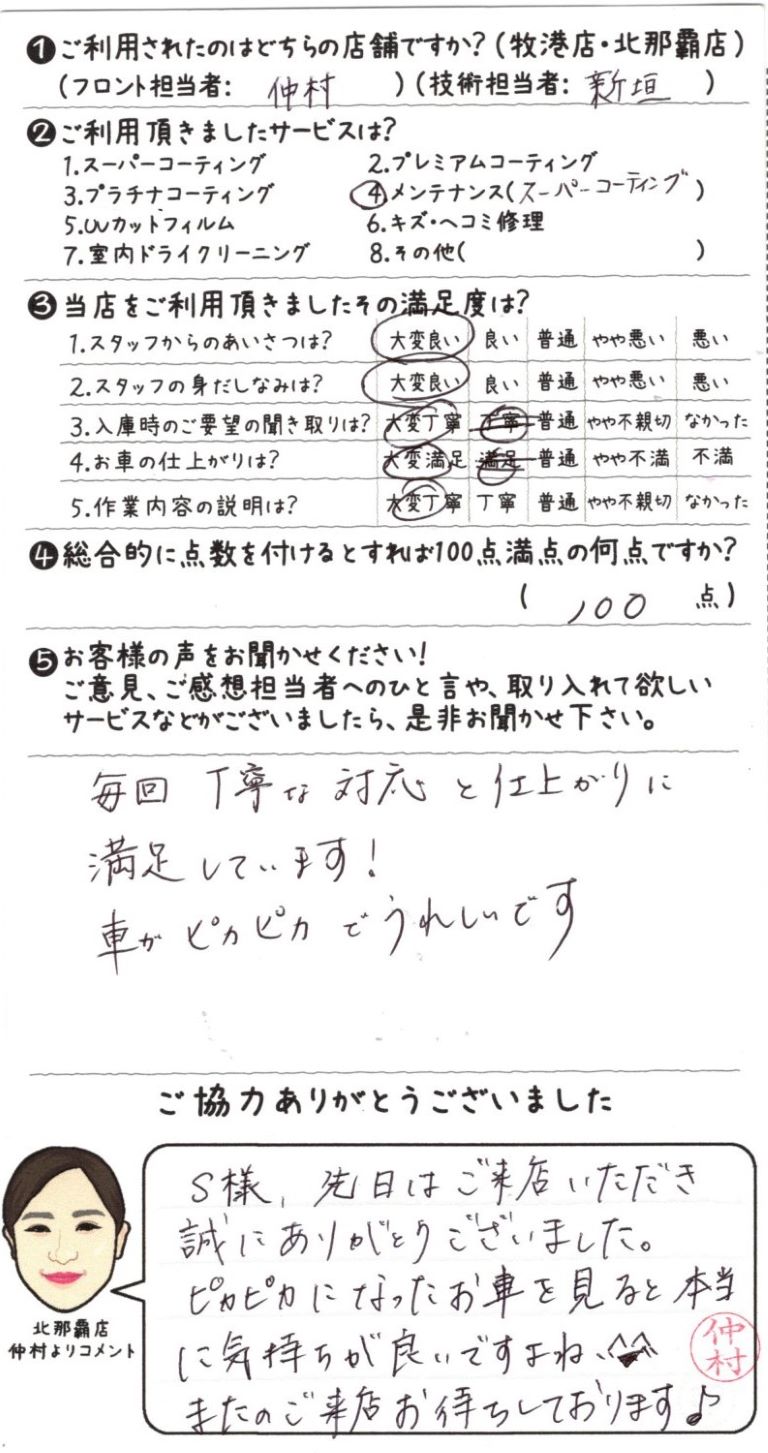 ❶ご利用されたのはどちらの店舗ですか?(牧港店・北那覇店)
(フロント担当者: 仲村 )(技術担当者: 新垣 )
❷ご利用頂きましたサービスは?
1.スーパーコーティング 2.プレミアムコーティング
3.プラチナコーティング ④メンテナンス(スーパーコーティング)
5.UVカットフィルム 6.キズ・ヘコミ修理
7.室内ドライクリーニング 8.その他( )
❸当店をご利用頂きましたその満足度は?
1.スタッフからのあいさつは? 大変良い 良い 普通 やや悪い 悪い
2.スタッフの身だしなみは? 大変良い 良い 普通 やや悪い 悪い
3.入庫時のご要望の聞き取りは? 大変丁寧 丁寧 普通 やや不親切 なかった
4.お車の仕上がりは? 大変満足 満足 普通 やや不満 不満
5.作業内容の説明は? 大変丁寧 丁寧 普通 やや不親切 なかった
❹総合的に点数を付けるとすれば100点満点の何点ですか?
( 100 点)
❺お客様の声をお聞かせください!
ご意見、ご感想担当者へのひと言や、取り入れて欲しい
サービスなどがございましたら、是非お聞かせ下さい。
毎回 丁寧な対応と仕上がりに
満足しています!
車がピカピカでうれしいです
ご協力ありがとうございました
S様、先日はご来店いただき
誠にありがとうございました。
ピカピカになったお車を見ると本当
に気持ちが良いですよね^^
またのご来店お待ちしております♪
仲村
北那覇店
仲村よりコメント